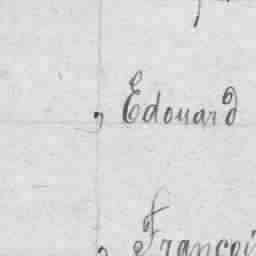 , Edouard
, Françoi